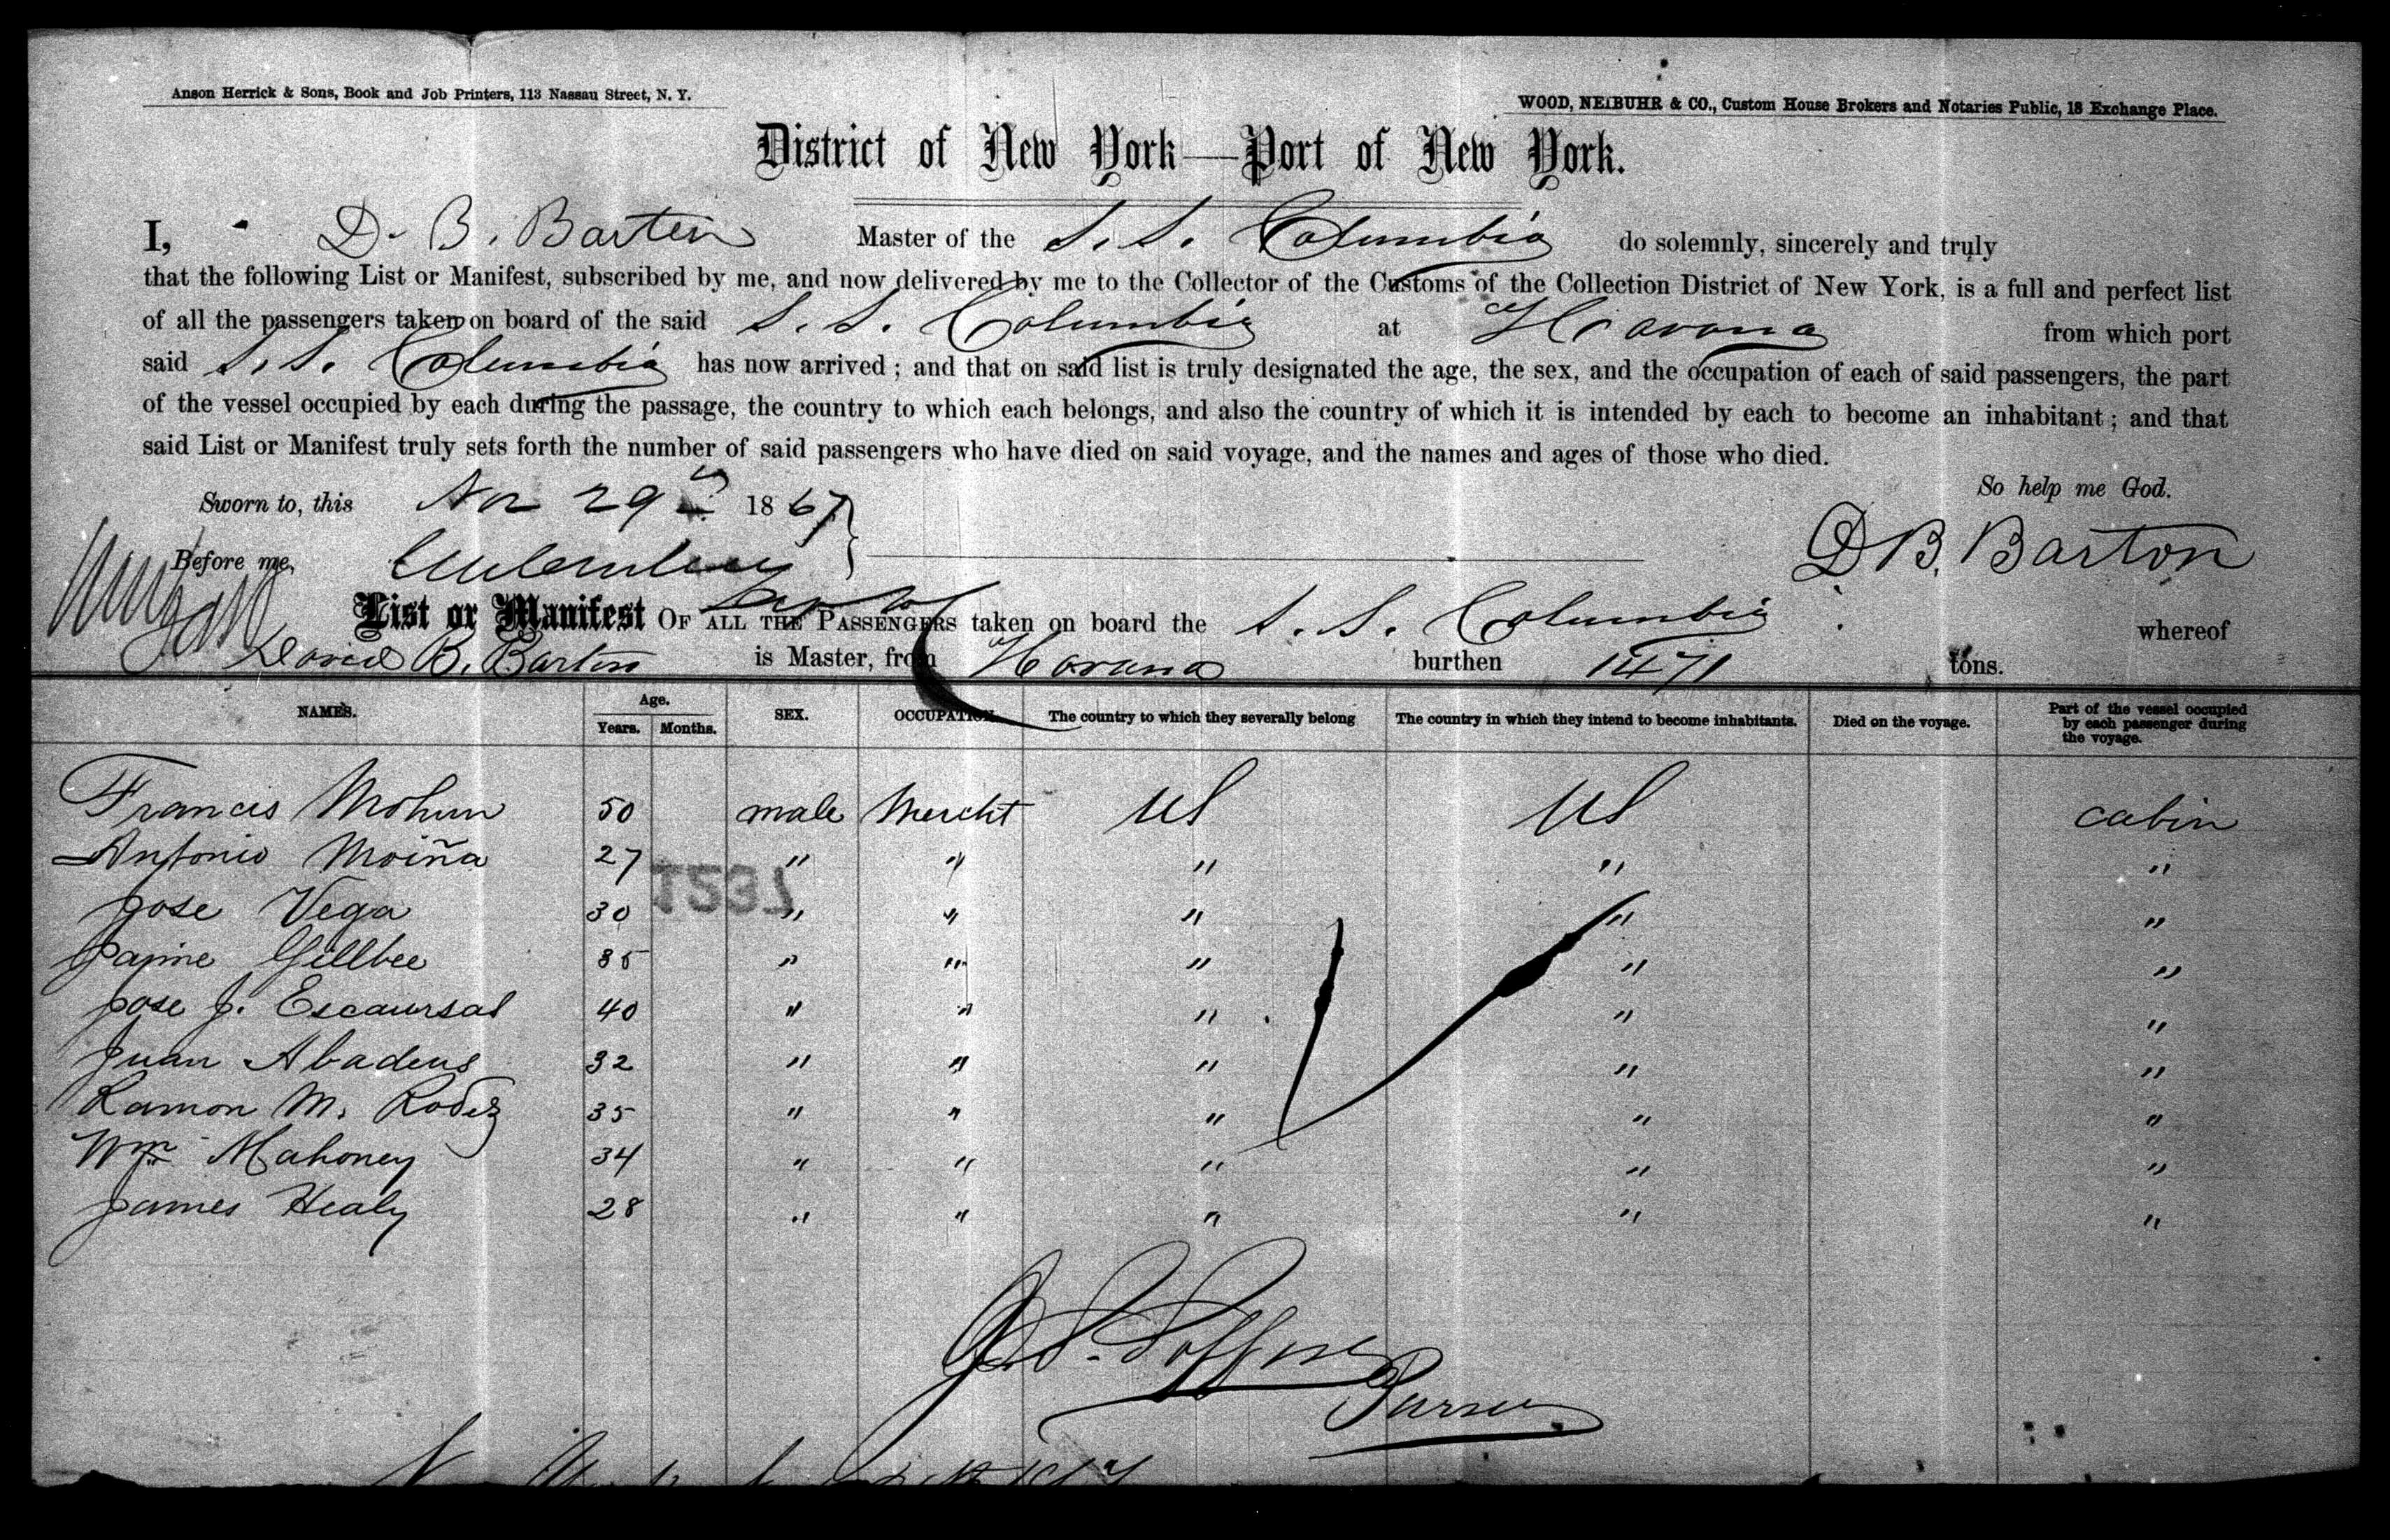 Anson Herrick & Sons, Book and Job Printers, 113 Nassau Street, N. Y.
WOOD, NEIBUHR & CO., Custom House Brokers and Notaries Public, 18 Exchange Place.
District of New York—Port of New York.
I, D. B. Barton Master of the S. S. Columbia do solemnly, sincerely and truly
that the following List or Manifest, subscribed by me, and now delivered by me to the Collector of the Customs of the Collection District of New York, is a full and perfect list
of all the passengers taken on board of the said S. S. Columbia at Havana from which port
said S. S. Columbia has now arrived; and that on said list is truly designated the age, the sex, and the occupation of each of said passengers, the part
of the vessel occupied by each during the passage, the country to which each belongs, and also the country of which it is intended by each to become an inhabitant; and that
said List or Manifest truly sets forth the number of said passengers who have died on said voyage, and the names and ages of those who died.
So help me God.
Sworn to, this Nov 29th 1867
Before me,
D B. Barton
List or Manifest OF ALL THE PASSENGERS taken on board the S. S. Columbia whereof
David B. Barton is Master, from Havana burthen 1471 tons.
NAMES. Age. Years. Months. SEX. OCCUPATION. The country to which they severally belong The country in which they intend to become inhabitants. Died on the voyage. Part of the vessel occupied by each passenger during the voyage.
Francis Mohun 50 male Mercht US US cabin
Antonio Moiña 27 " " " " "
1237
Jose Vega 30 " " " " "
Jaime Gillbee 35 " " " " "
Jose J. Escaursal 40 " " " " "
Juan Abadens 32 " " " " "
Ramon M. Rodez 35 " " " " "
Wm Mahoney 34 " " " " "
James Healy 28 " " " " "
Purser